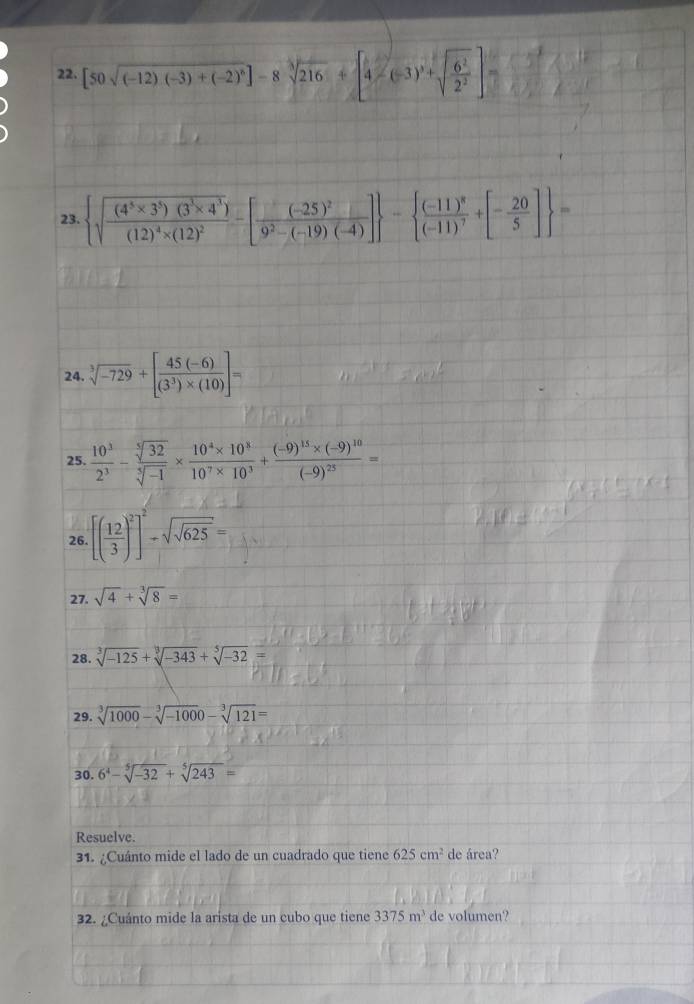 22. [50 √((-12) (-3) + (-2)⁶)] - 8 ∛216 + [4 - (-3)³ + √(6²/2²)] =
23. {√((4⁵ × 3⁵) (3³ × 4³) / (12)⁴ × (12)²) - [(-25)² / 9² - (-19) (-4)]} - {(-11)⁸ / (-11)⁷ + [- 20/5]} =
24. ∛-729 + [45 (-6) / (3³) × (10)] =
25. 10³/2³ - ⁵√32 / ⁵√-1 × 10⁴ × 10⁸ / 10⁷ × 10³ + (-9)¹⁵ × (-9)¹⁰ / (-9)²⁵ =
26. [(12/3)²]² ÷ √√625 =
27. √4 + ∛8 =
28. ∛-125 + ∛-343 + ⁵√-32 =
29. ∛1000 - ∛-1000 - ∛121 =
30. 6⁴ - ⁵√-32 + ⁵√243 =
Resuelve.
31. ¿Cuánto mide el lado de un cuadrado que tiene 625 cm² de área?
32. ¿Cuánto mide la arista de un cubo que tiene 3375 m³ de volumen?